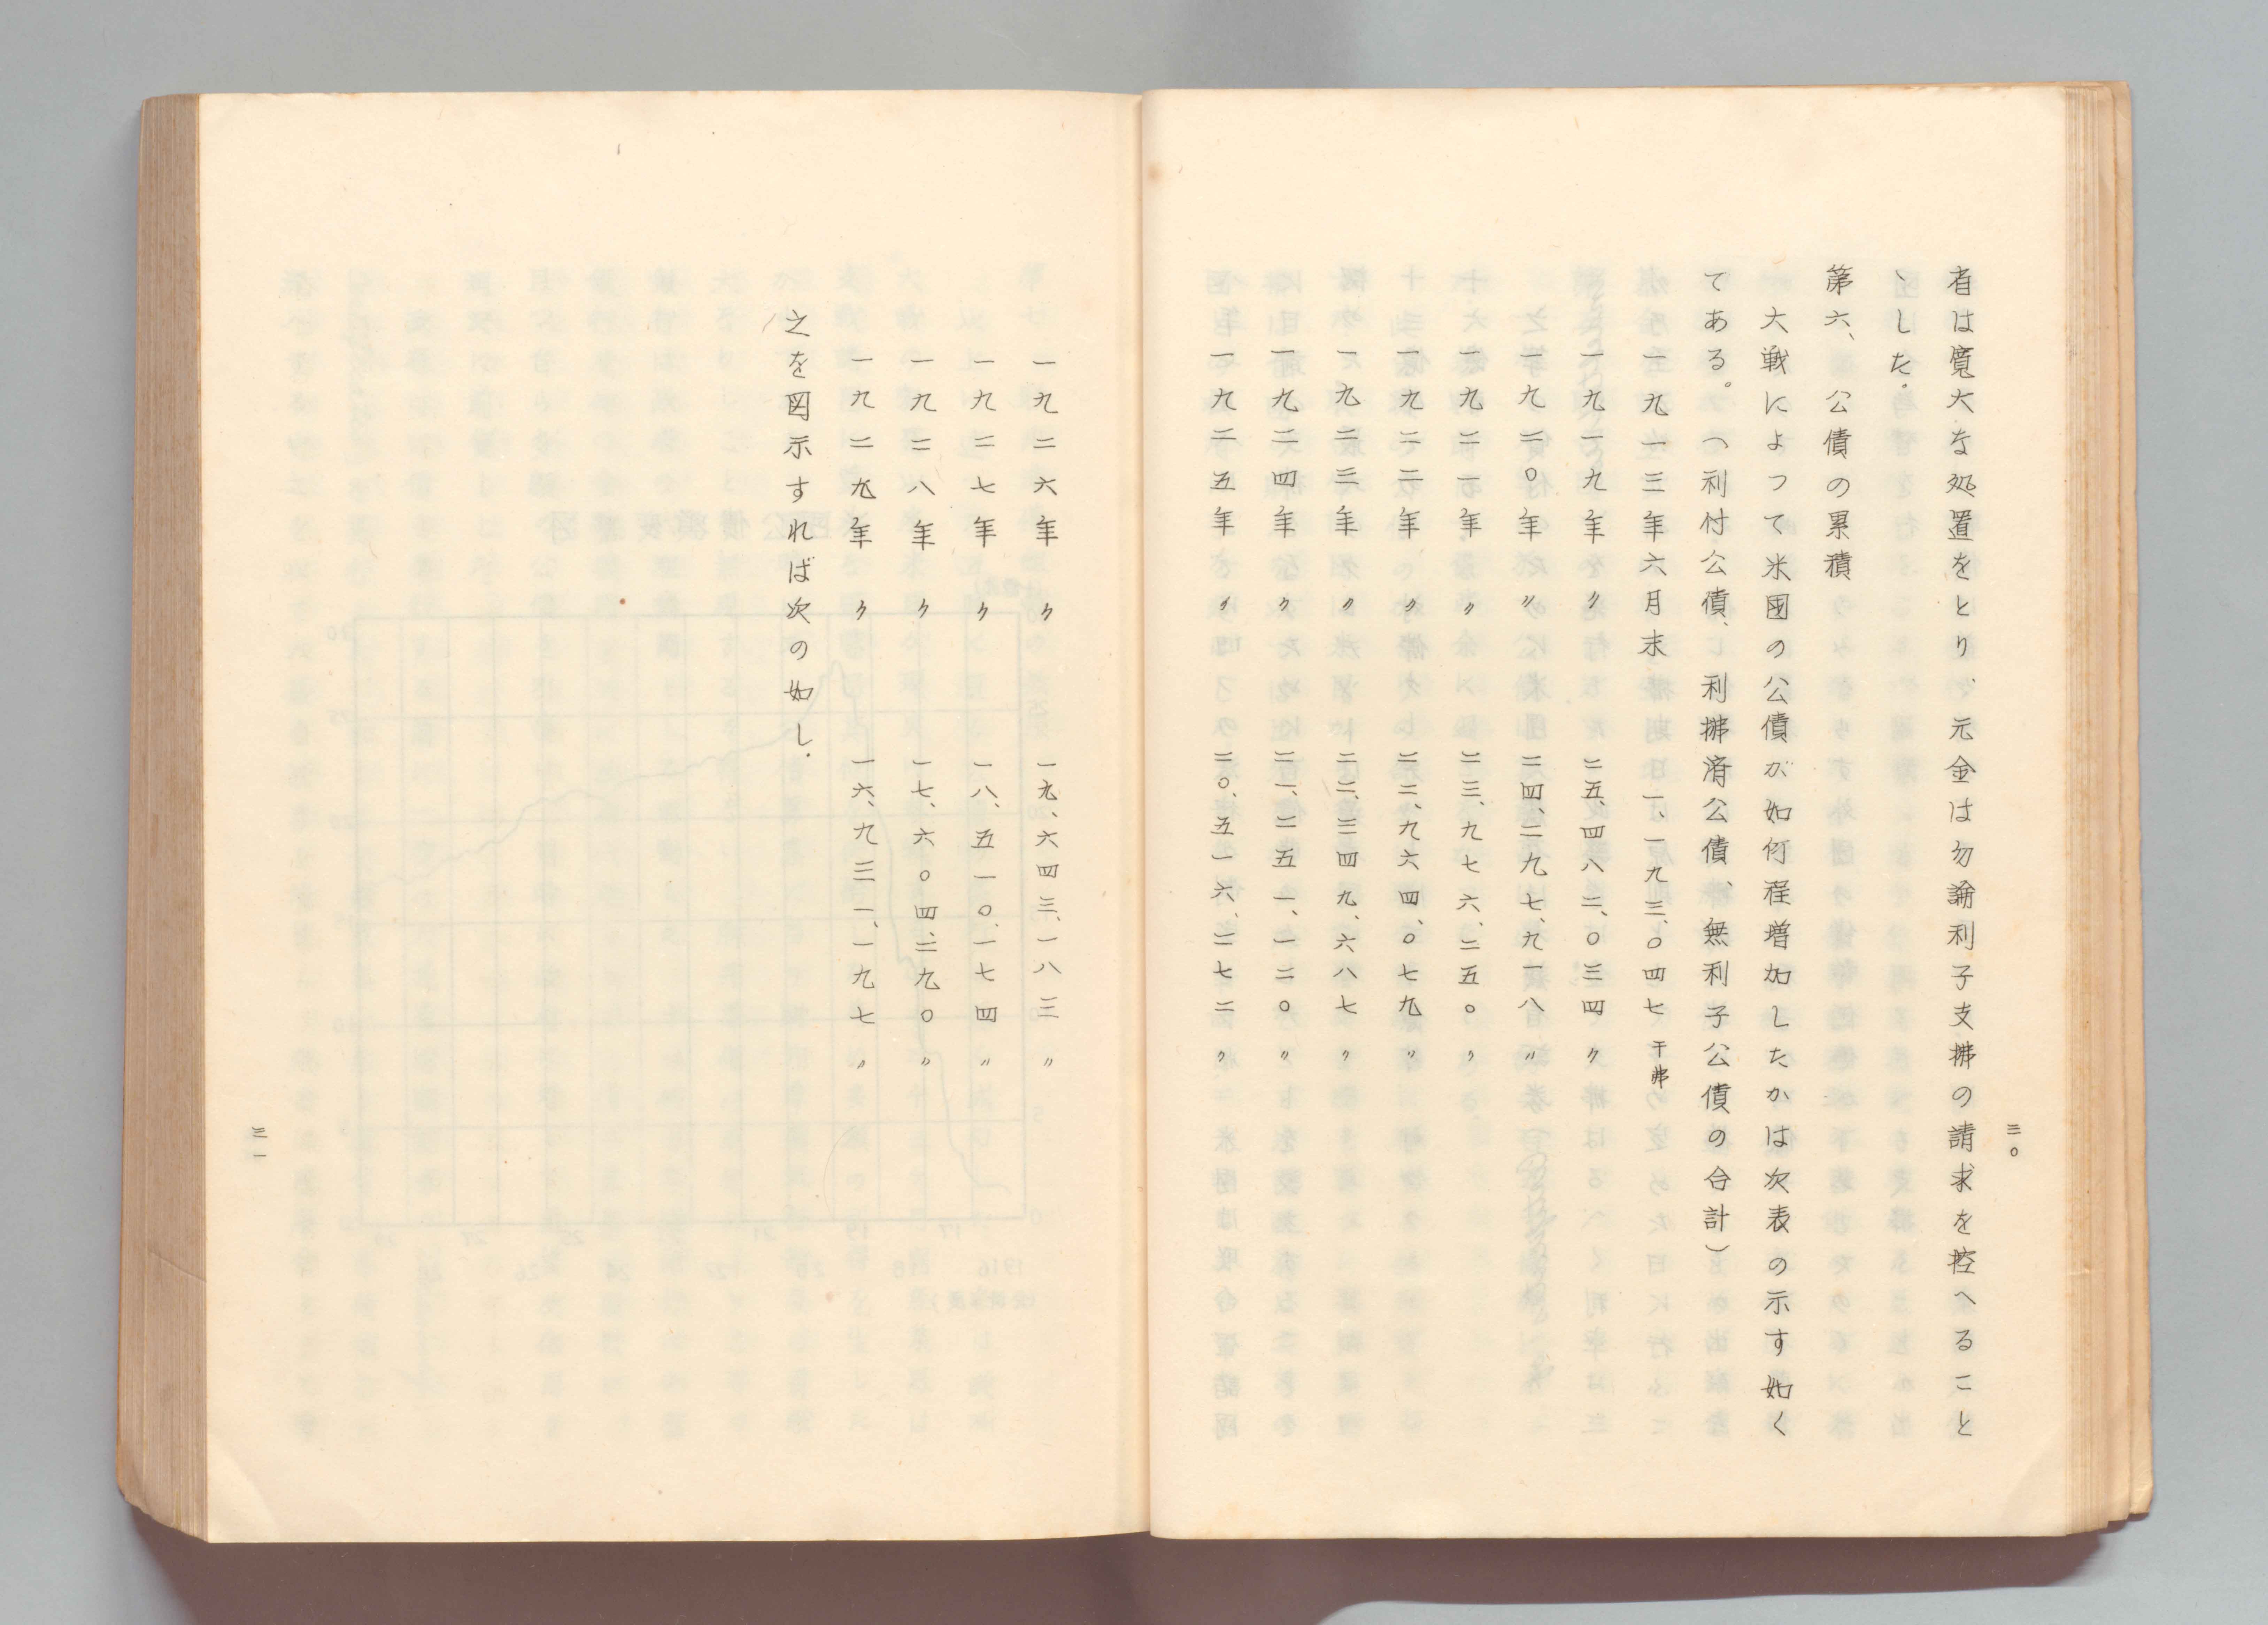 三〇
者は寛大な処置をとり、元金は勿論利子支拂の請求を控へること
ゝした。
第六、公債の累積
大戦によつて米國の公債が如何程増加したかは次表の示す如く
てある。（利付公債、利拂済公債、無利子公債の合計）
一九一三年六月末 一、一九三、〇四七 千弗
一九一九年〃 二五、四八二、〇三四〃
一九二〇年〃 二四、二九七、九一八〃
一九二一年〃 二三、九七六、二五〇〃
一九二二年〃 二二、九六四、〇七九〃
一九二三年〃 二二、三四九、六八七〃
一九二四年〃 二一、二五一、一二〇〃
一九二五年〃 二〇、五一六、二七二〃
一九二六年〃 一九、六四三、一八三〃
一九二七年〃 一八、五一〇、一七四〃
一九二八年〃 一七、六〇四、二九〇〃
一九二九年〃 一六、九三一、一九七〃
之を図示すれば次の如し.
三一